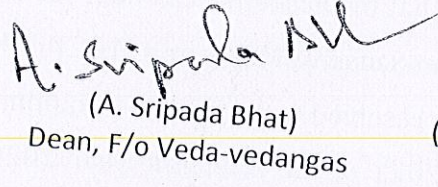 A. Sripada Bhat
(A. Sripada Bhat)
Dean, F/o Veda-vedangas
(